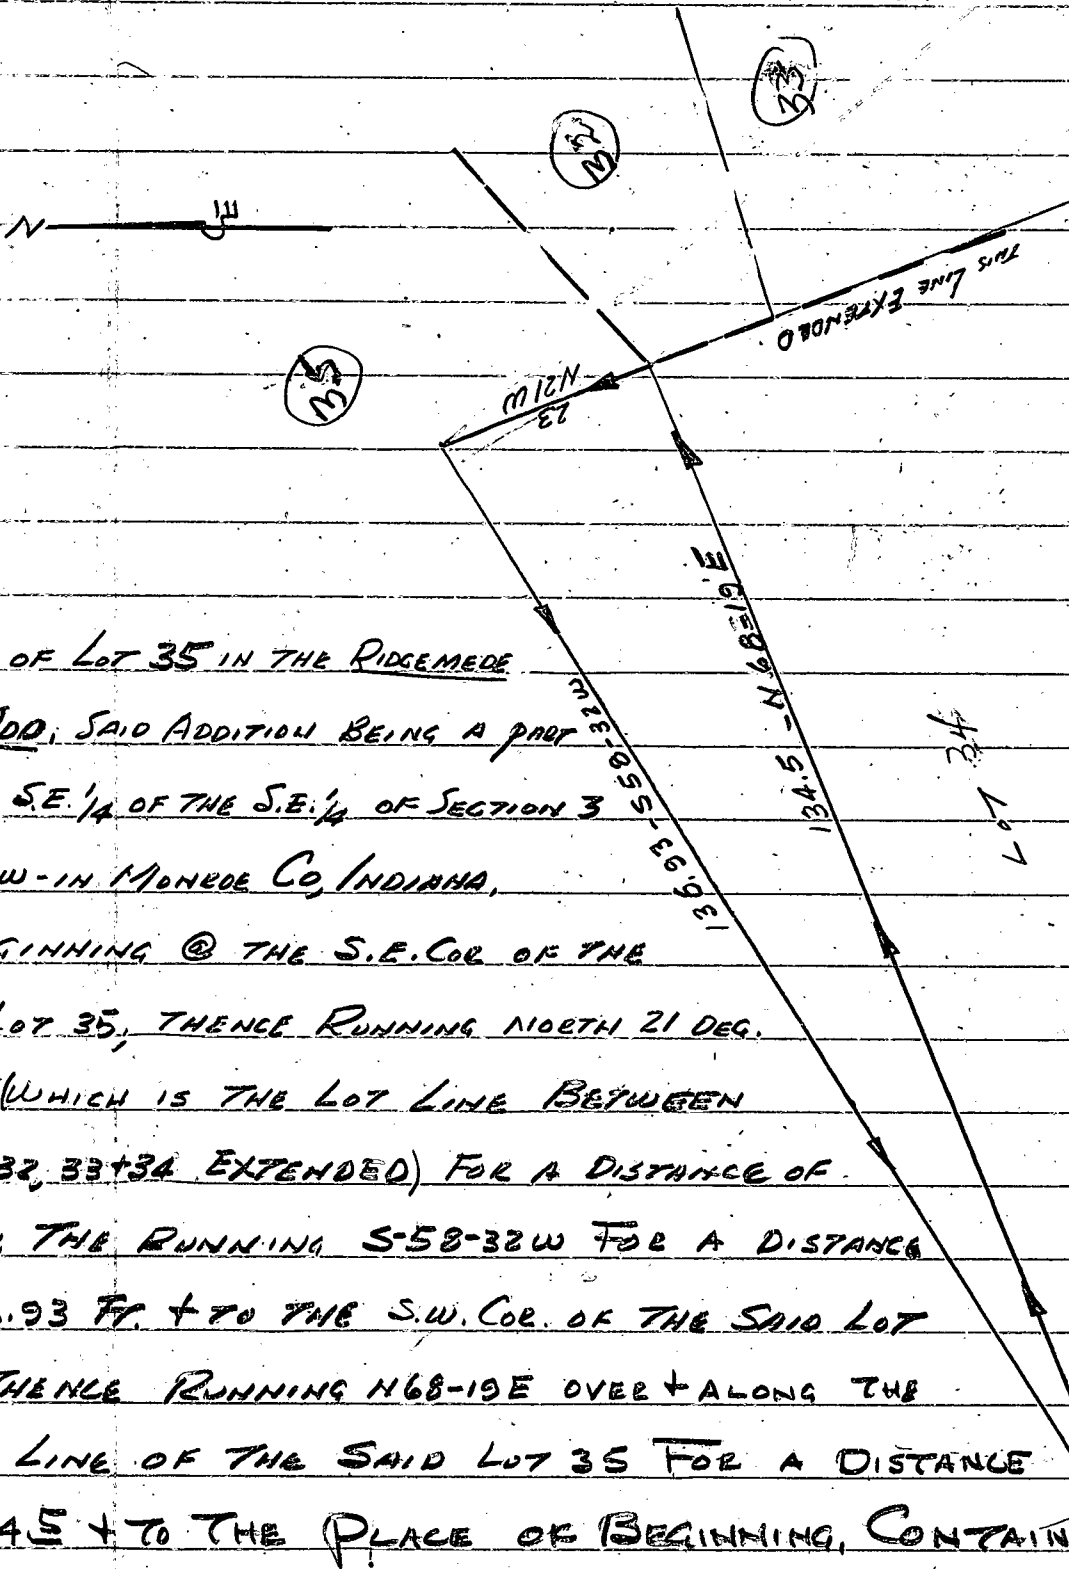 33
32
N
E
THIS LINE EXTENDED
35
N21W
23
134.5 - N68=19E
136.93-S58-32W
LOT 34
OF LOT 35 IN THE RIDGEMEDE
DD, SAID ADDITION BEING A PART
S.E.1/4 OF THE S.E.1/4 OF SECTION 3
W-IN MONROE CO, INDIANA,
GINNING @ THE S.E. COR OF THE
LOT 35, THENCE RUNNING NORTH 21 DEG.
(WHICH IS THE LOT LINE BETWEEN
32, 33+34 EXTENDED) FOR A DISTANCE OF
THE RUNNING S-58-32W FOR A DISTANCE
.93 FT. + TO THE S.W. COR. OF THE SAID LOT
THENCE RUNNING N68-19E OVER + ALONG THE
LINE OF THE SAID LOT 35 FOR A DISTANCE
45 + TO THE PLACE OF BEGINNING, CONTAIN